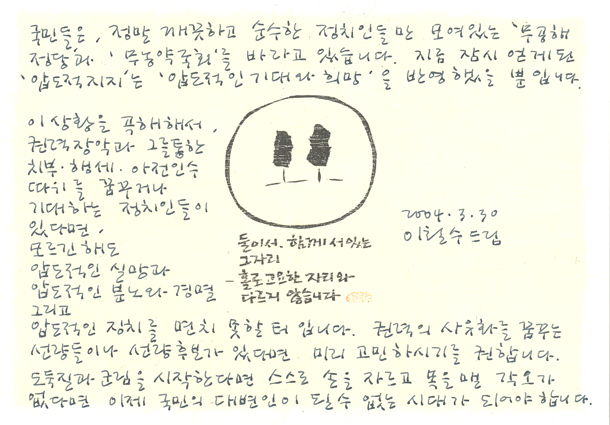 국민들은, 정말 깨끗하고 순수한 정치인들만 모여있는 '무공해
정당'과 '무농약국회'를 바라고 있습니다. 지금 잠시 얻게된
'압도적지지'는 '압도적인 기대와 희망'을 반영했을 뿐입니다.
이 상황을 곡해해서,
권력장악과 그를통한
치부·행세·아전인수
따위를 꿈꾸거나
기대하는 정치인들이
있다면,
모르긴해도
압도적인 실망과
압도적인 분노와 경멸
그리고
압도적인 정치를 면치 못할 터입니다. 권력의 사유화를 꿈꾸는
선량들이나 선량후보가 있다면 미리 고민하시기를 권합니다.
도둑질과 군림을 시작한다면 스스로 손을 자르고 목을 맬 각오가
없다면 이제 국민의 대변인이 될 수 없는 시대가 되어야 합니다.
둘이서 함께 서있는
그자리
홀로고요한 자리와
다르지 않습니다
2004.3.30
이철수드림